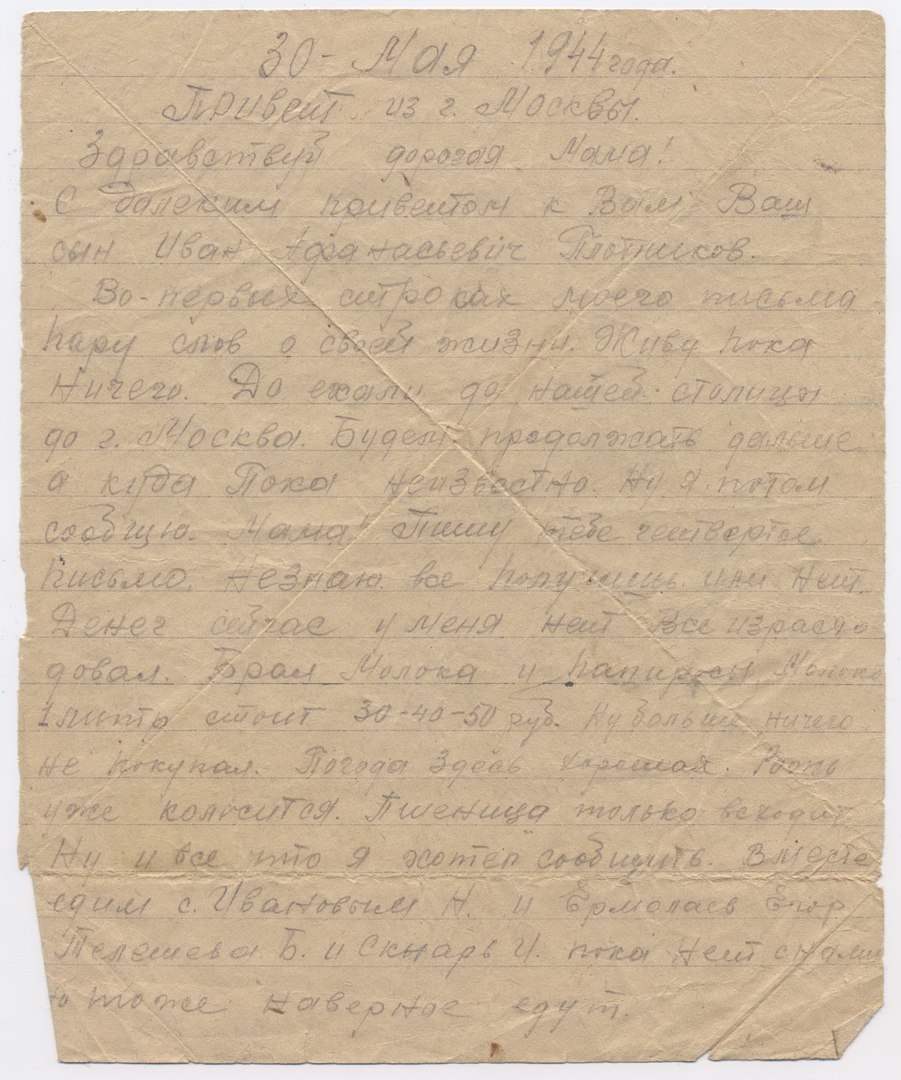 30 - Мая 1944 года.
Привет из г. Москвы.
Здравствуй дорогая Мама!
С далеким приветом к Вам Ваш
сын Иван Афанасьевич Плотников.
Во-первых строках моего письма
пару слов о своей жизни. Живу пока
ничего. До ехали до нашей столицы
до г. Москва. Будем продолжать дальше
а куда Пока неизвестно. Ну я потом
сообщу. Мама! Пишу тебе четвертое
письмо. незнаю все получишь или нет.
Денег сейчас у меня нет Все израсхо
довал. Брал Молока и папиросы. Молоко
1 литр стоит 30-40-50 руб. Ну больше ничего
не покупал. Погода здесь хорошая. Рожь
уже колосится. Пшеница только всходит
Ну и все что я хотел сообщить. Вместе
едим с. Ивановым Н. и Ермолаев Егор
Телешева Б. и Скнарь И. пока нет снами
но тоже наверное едут.